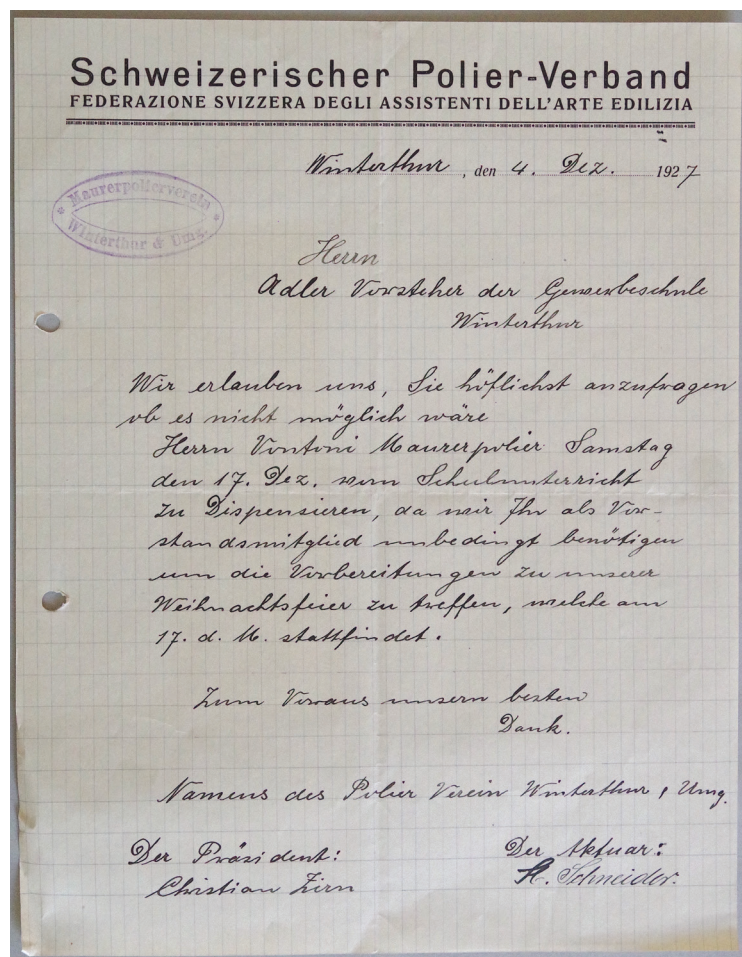 Schweizerischer Polier-Verband
FEDERAZIONE SVIZZERA DEGLI ASSISTENTI DELL'ARTE EDILIZIA
Winterthur, den 4. Dez. 1927
Maurerpolierverein
Winterthur & Umg.
Herrn
Adler Vorsteher der Gewerbeschule
Winterthur
Wir erlauben uns, Sie höflichst anzufragen
ob es nicht möglich wäre
Herrn Vontoni Maurerpolier Samstag
den 17. Dez. vom Schulunterricht
zu Dispensieren, da wir Ihn als Vor-
standsmitglied unbedingt benötigen
um die Vorbereitungen zu unserer
Weihnachtsfeier zu treffen, welche am
17. d. M. stattfindet.
Zum Voraus unsern besten
Dank.
Namens des Polier Verein Winterthur, Umg.
Der Präsident:
Christian Zirn
Der Aktuar:
H. Schneider.